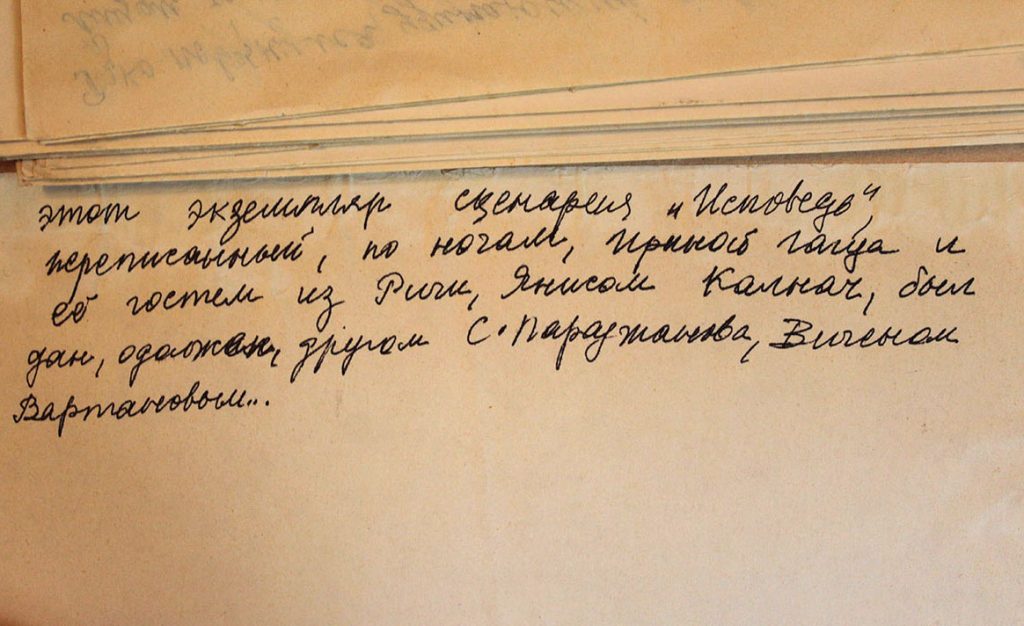 этот экземпляр сценария „Исповедь“,
переписанный, по ночам, Ириной гагуа и
её гостем из Риги, Янисом Калнач, был
дан, одолжен, другом С. Параджанова, Виченом
Вартановым...